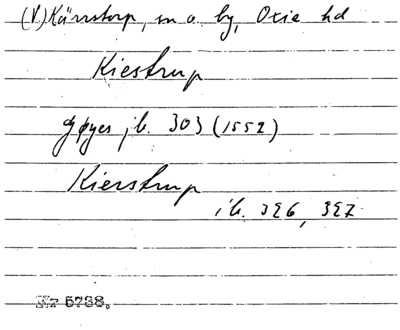 (V.) Kärrstorp, sn o. by, Oxie hd
Kiestrup
Gøyes jb. 303 (1552)
Kierstrup
ib. 326, 327
Nr 5738.